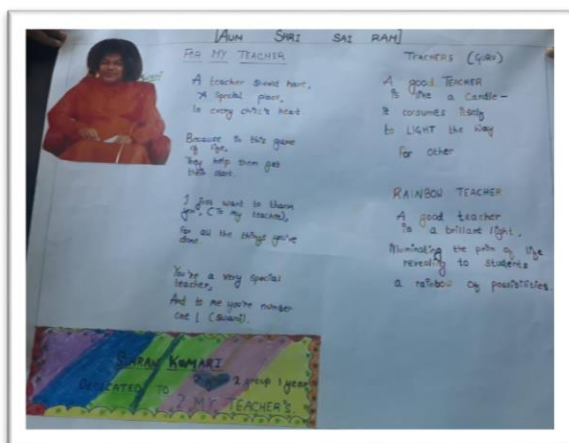 [AUM SHRI SAI RAM]
FOR MY TEACHER
A teacher should have,
A special place,
In every child's heat
Because in this game
of life,
They help them get
their start.
I just want to thank
you, (To my teacher),
For all the things you've
done.
You're a very special
teacher,
And to me you're number
one! (Swami).
TEACHERS (GURU)
A good TEACHER
is like a Candle-
it consumes itself
to LIGHT the way
for other
RAINBOW TEACHER
A good teacher
is a brillant light,
illuminating the path of life
revealing to students
a rainbow of possibilities.
SIMRAN KUMARI
2 group 1 year
DEDICATED TO
MY TEACHER'S.